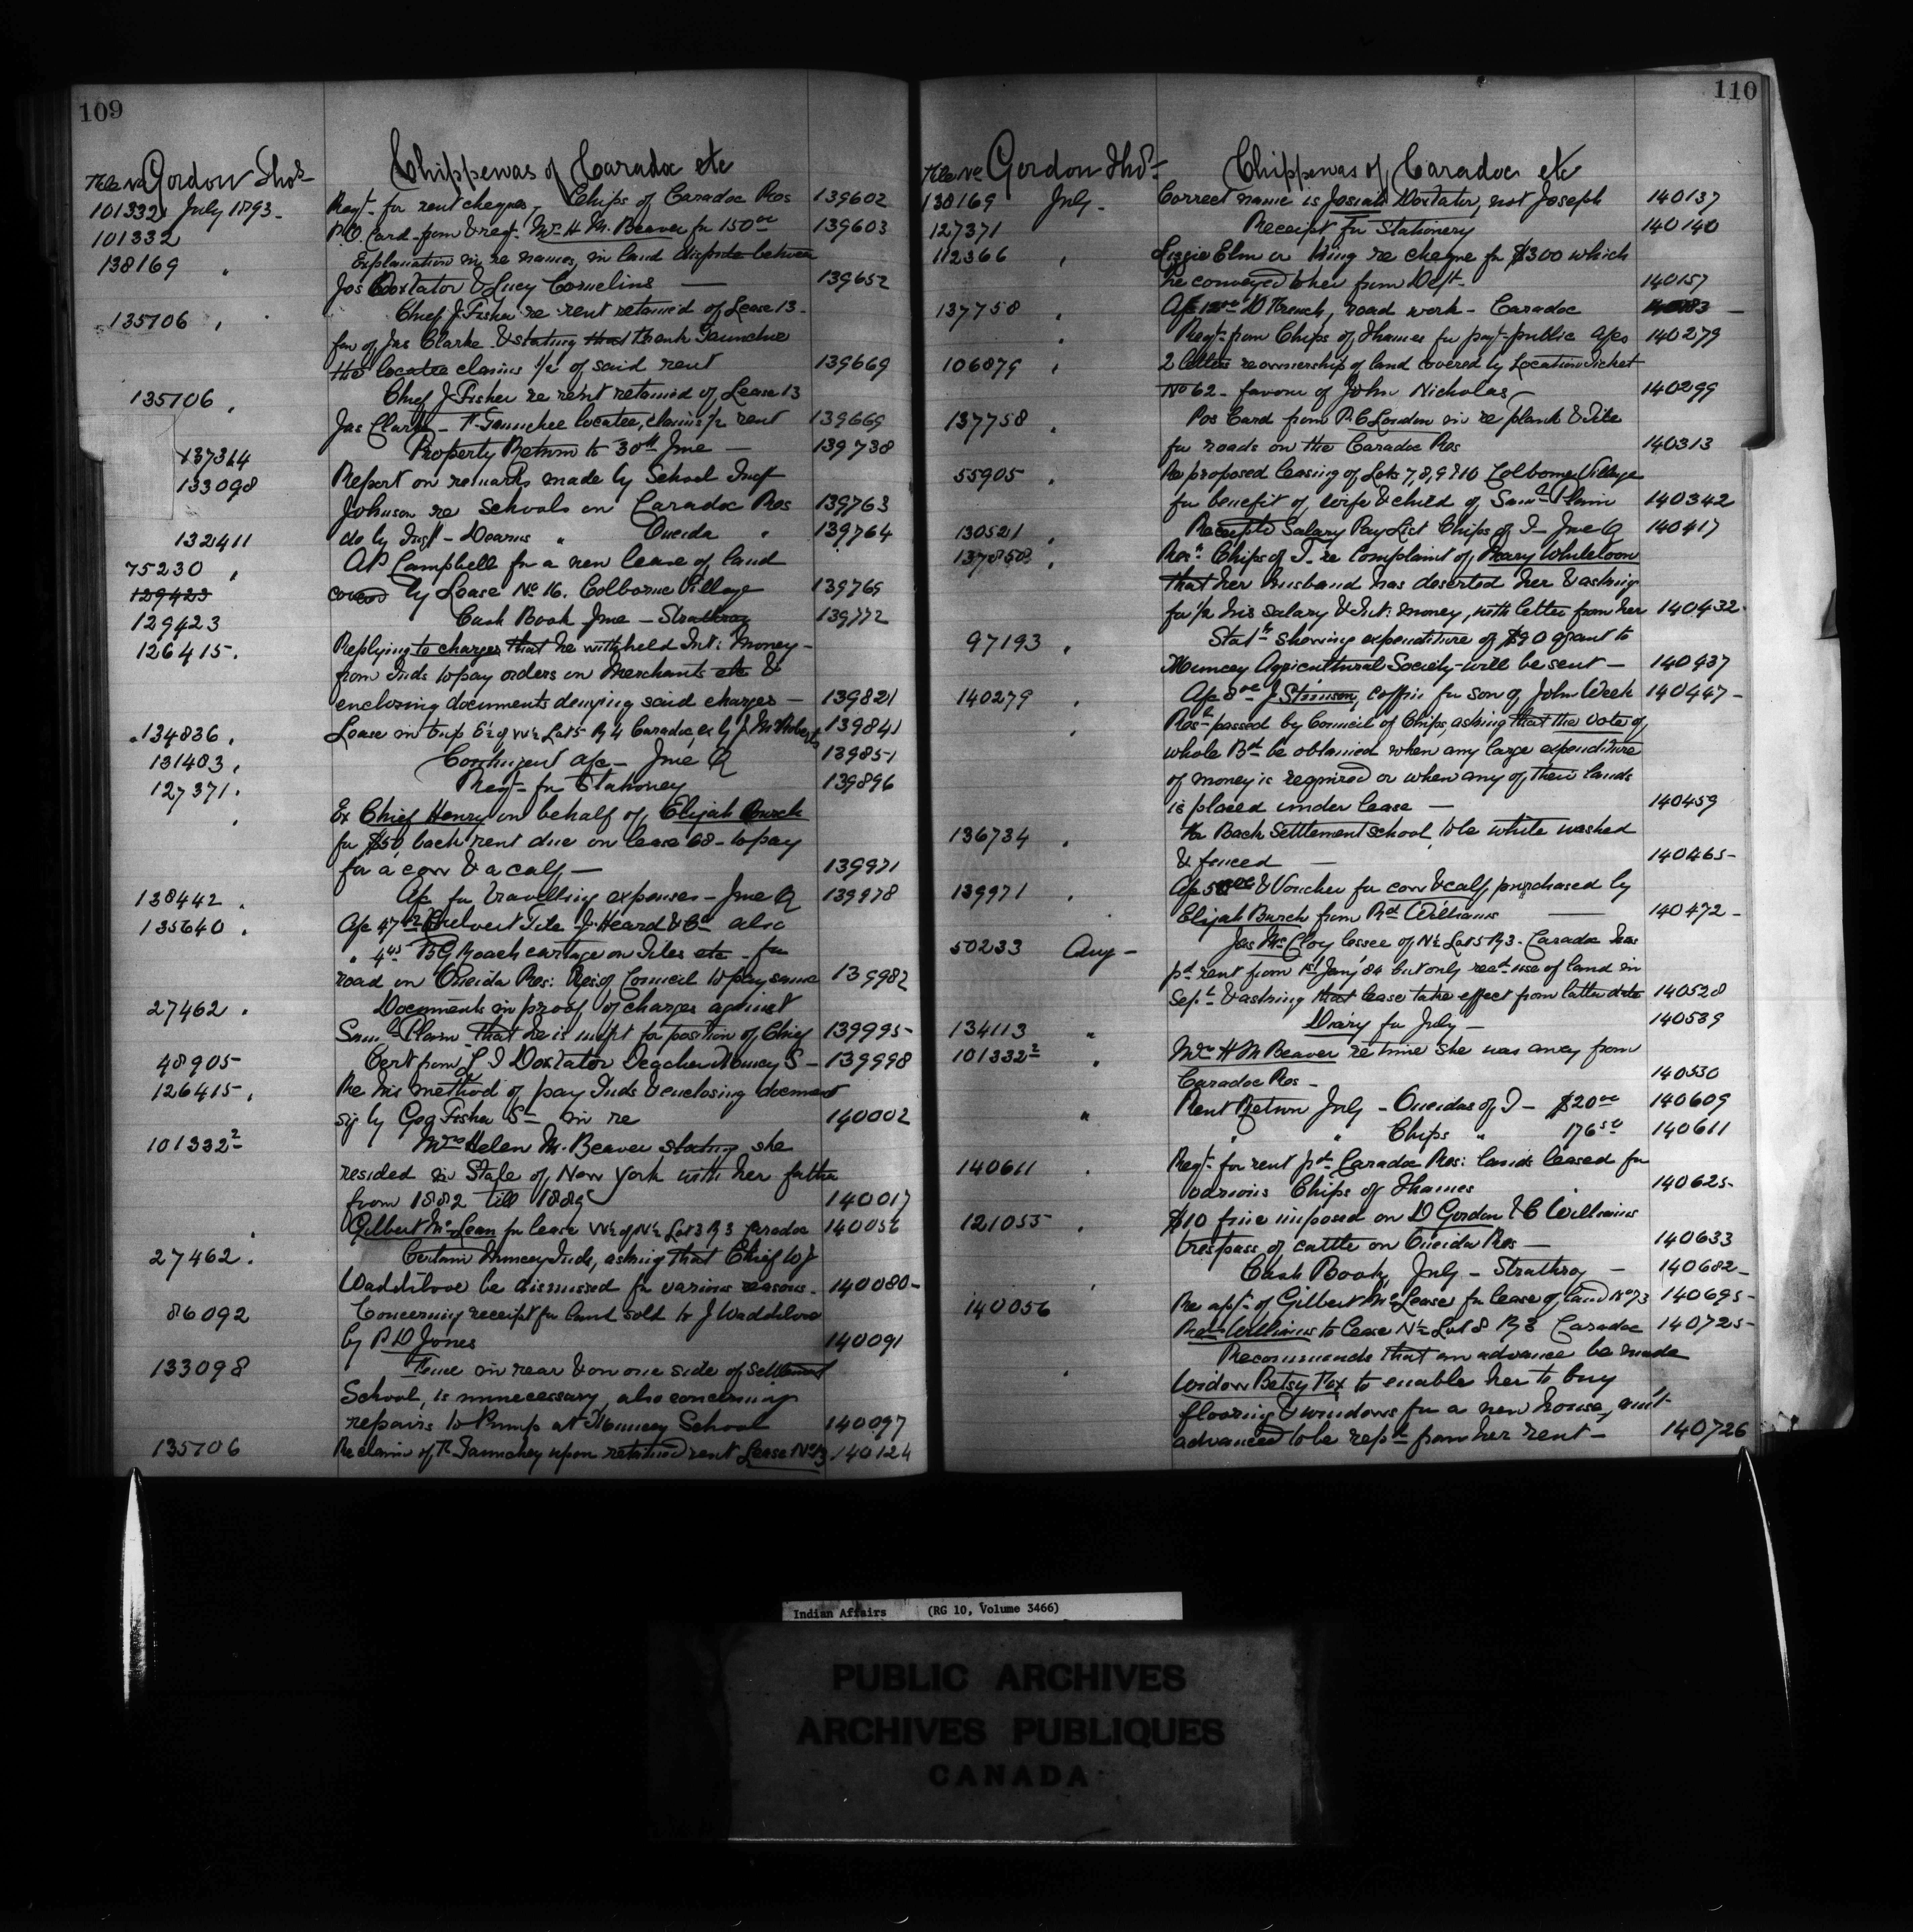 109
File No Gordon Thos
Chippewas of Caradoc etc
101332 July 1893 Reqt for rent cheques, Chips of Caradoc Res 139602
101332 P.O. Card from & reqt Mrs H M. Beaver for 150 00 139603
138169 " Explanation in re names, in land dispute between
Jos Doxtator & Lucy Cornelius 139652
135706 " Chief J Fisher re rent retained of Lease 13
fav of Jas Clarke & stating that Frank
the locatee claims 1/2 of said rent 139669
135706 " Chief J Fisher re rent retained of Lease 13
Jas Clark - F. locatee, claims 1/2 rent 139669
137314 Property Return to 30th June 139738
133098 Report on remarks made by School Insp
Johnson re schools on Caradoc Res 139763
132411 do by Inspt - Dearns " Oneida " 139764
75230 " AP Campbell for a new lease of land
129423 covered by Lease No 16. Colborne Village 139769
129423 Cash Book June - Strathroy 139772
126415 Replying to charges that he withheld Int: Money
from Inds to pay orders on merchants etc &
enclosing documents denying said charges 139821
134836 Lease in trip E½ of W½ Lot 5 R 4 Caradoc 139841
131403 Contingent a/c - June Q 139851
127371 Reqt for Stationery 139896
" Ex Chief Henry on behalf of Elijah Burch
for $50 back rent due on lease 68 - to pay
for a cow & a calf 139971
138442 A/c for travelling expenses - June Q 139978
135640 A/c 47 Culvert Tile J. Heard & Co also
" 4 B G Roach cartage on Tiles etc for
road on Oneida Res: Res: of Council to pay same 139982
27462 Documents in proof of charges against
Saml Plain that he is unfit for position of Chief 139995
48905 Cert from L I Doxtator Teacher Muncey S 139998
126415 Re his method of pay Inds & enclosing document
sig by Geo Fisher Sr in re 140002
101332 2 Mrs Helen M. Beaver stating she
resided in State of New York with her father
from 1882 till 1889 140017
" Gilbert McLean for lease W½ of N½ Lot 3 R 3 Caradoc 140056
27462 Certain Muncey Inds, asking that Chief W J
Waddilove be dismissed for various reasons 140080
86092 Concerning receipt for land sold to J Waddilove
by P D Jones 140091
133098 Fence in rear & on one side of Settlement
School, is unnecessary, also concerning
repairs to Pump at Muncey School 140097
135706 Re claim of F. upon retained rent Lease No 13 140124
110
File No Gordon Thos
Chippewas of Caradoc etc
138169 July Correct name is Josiah Doxtator, not Joseph 140137
127371 Receipt for Stationery 140140
112366 " Lizzie Elm or King re cheque for $300 which
he conveyed to her from Dept 140157
137758 " A/c 12 00 D French, road work - Caradoc
" Reqt from Chips of Thames for payt public a/cs 140279
106879 " 2 letters re ownership of land covered by Location Ticket
No 62 - favour of John Nicholas 140299
137758 " Pos Card from London in re plank & tile
for roads on the Caradoc Res 140313
55905 " Re proposed leasing of Lots 7, 8, 9 & 10 Colborne Village
for benefit of wife & child of Saml Plain 140342
130521 " Receipts Salary Pay List Chips of T - June Q 140417
137850 " Resn Chips of T. re Complaint of Mary Whiteloon
that her husband has deserted her & asking
for ½ his salary & Int: money, with letter from her 140432
97193 " Statt showing expenditure of $90 grant to
Muncey Agricultural Society - will be sent 140437
140279 " A/c 8 00 J Stinson, coffin for son of John Week 140447
" Resn passed by Council of Chips, asking that the vote of
whole Bd be obtained when any large expenditure
of money is required or when any of their lands
is placed under lease 140459
136734 " The Back Settlement school, to be white washed
& fenced 140465
139971 " A/c 50 00 & Voucher for cow & calf, purchased by
Elijah Burch from Rd Williams 140472
50233 Aug Jas McCloy lessee of N½ Lot 5 R 3. Caradoc has
pd rent from 1st Jany 84 but only recd use of land in
Sept & asking that lease take effect from latter date 140528
134113 " Diary for July 140539
101332 2 " Mrs H M Beaver re time she was away from
Caradoc Res 140530
" Rent Return July - Oneidas of T - $20 00 140609
" " Chips " 176 50 140611
140611 " Reqt for rent pd Caradoc Res: lands leased for
various Chips of Thames 140625
121055 " $10 fine imposed on D Gordon & C Williams
trespass of cattle on Oneida Res 140633
" Cash Book, July - Strathroy 140682
140056 Re apl of Gilbert McLease for lease of land No 73 140695
Williams to lease N½ Lot 8 R 3 Caradoc 140725
" Recommends that an advance be made
Widow Betsy Fox to enable her to buy
flooring & windows for a new house, amt
advanced to be repd from her rent 140726
Indian Affairs (RG 10, Volume 3466)
PUBLIC ARCHIVES
ARCHIVES PUBLIQUES
CANADA